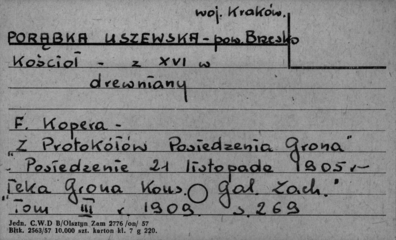 woj. Kraków.
PORĄBKA USZEWSKA - pow. Brzesko
Kościół - z XVI w
drewniany
F. Kopera -
"Z Protokółów Posiedzenia Grona"
- Posiedzenie 21 listopada 1905 r -
"Teka Grona Kons. Gal. Zach."
Tom III r 1909. s. 269
Jedn. C.W.D B/Olsztyn Zam 2776 /on/ 57
Blsk. 2563/57 10.000 szt. karton kl. 7 g 220.